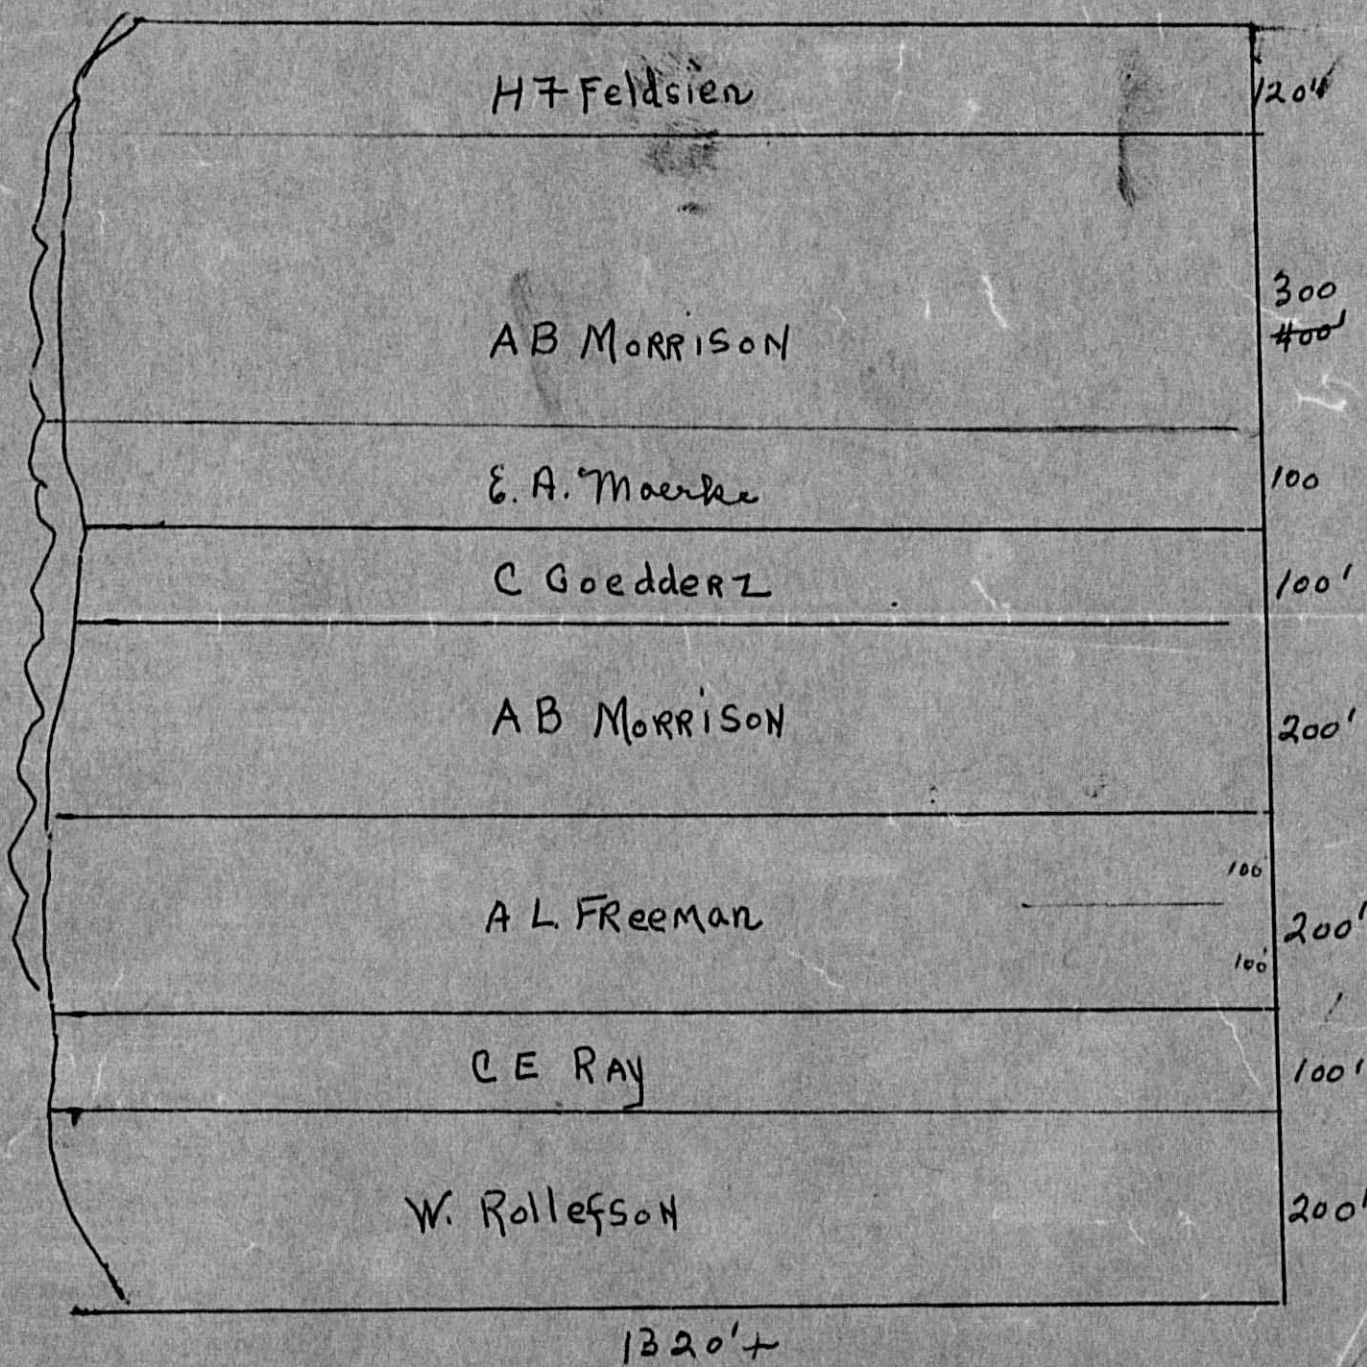 H F Feldsien 120'
300
AB MORRISON 400'
E. A. Moerke 100
C Goedderz 100'
AB MORRISON 200'
100'
A L. FReeman 200'
100'
C E RAY 100'
W. Rollefson 200'
1320'+